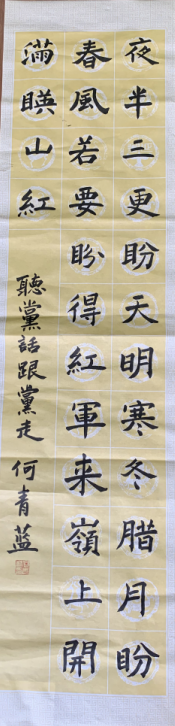 夜半三更盼天明寒冬腊月盼
春風若要盼得紅軍来嶺上開
滿暎山紅
聽黨話跟黨走 何青蓝